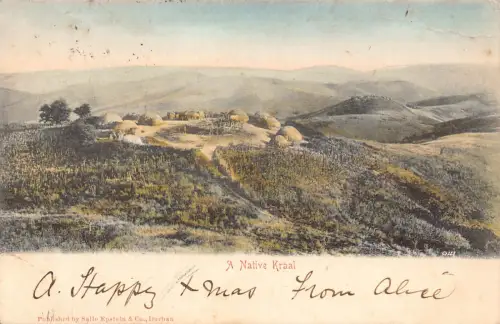 A Native Kraal
A Happy Xmas From Alice
Published by Sallo Epstein & Co., Durban